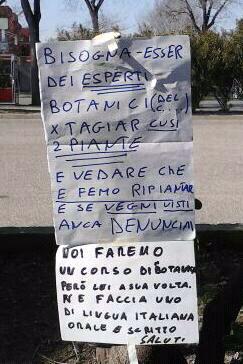 BISOGNA-ESSER
DEI ESPERTI
BOTANICI (DEL C...)
X TAGIAR CUSI
2 PIANTE
E VEDARE CHE
E FEMO RIPIANTAR
E SE VEGNI VISTI
ANCA DENUNCIAI
NOI FAREMO
UN CORSO DI BOTANICA
PERÒ LEI A SUA VOLTA.
NE FACCIA UNO
DI LINGUA ITALIANA
ORALE E SCRITTO
SALUTI